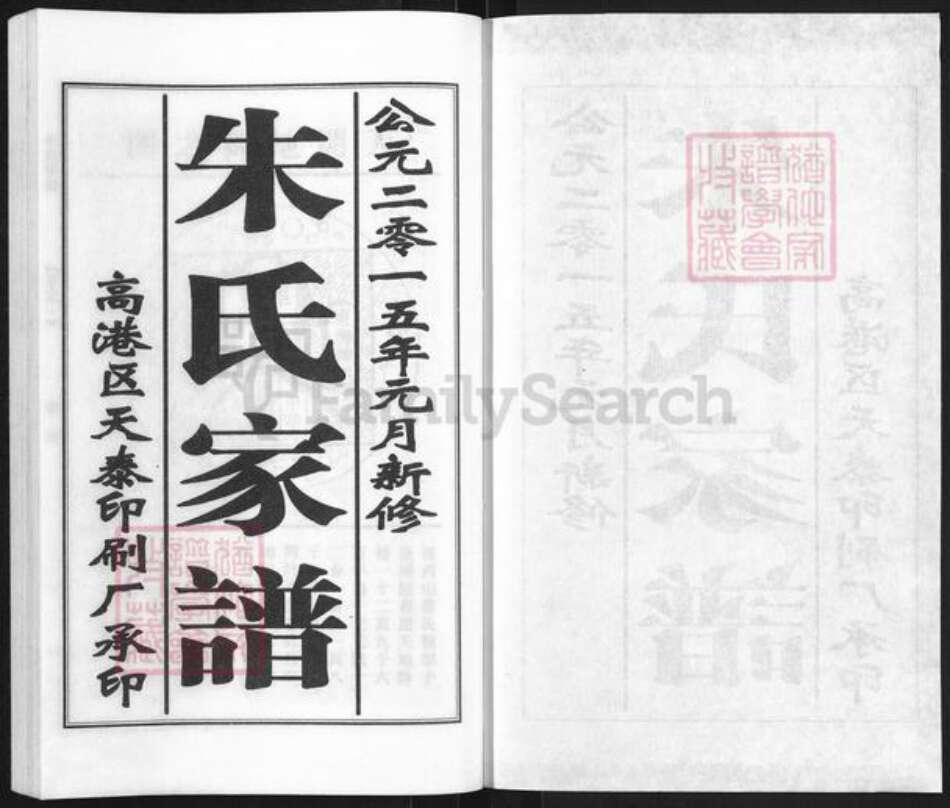 公元二零一五年元月新修
朱氏家譜
高港区天泰印刷厂承印
猶他家
譜學會
收藏
FamilySearch